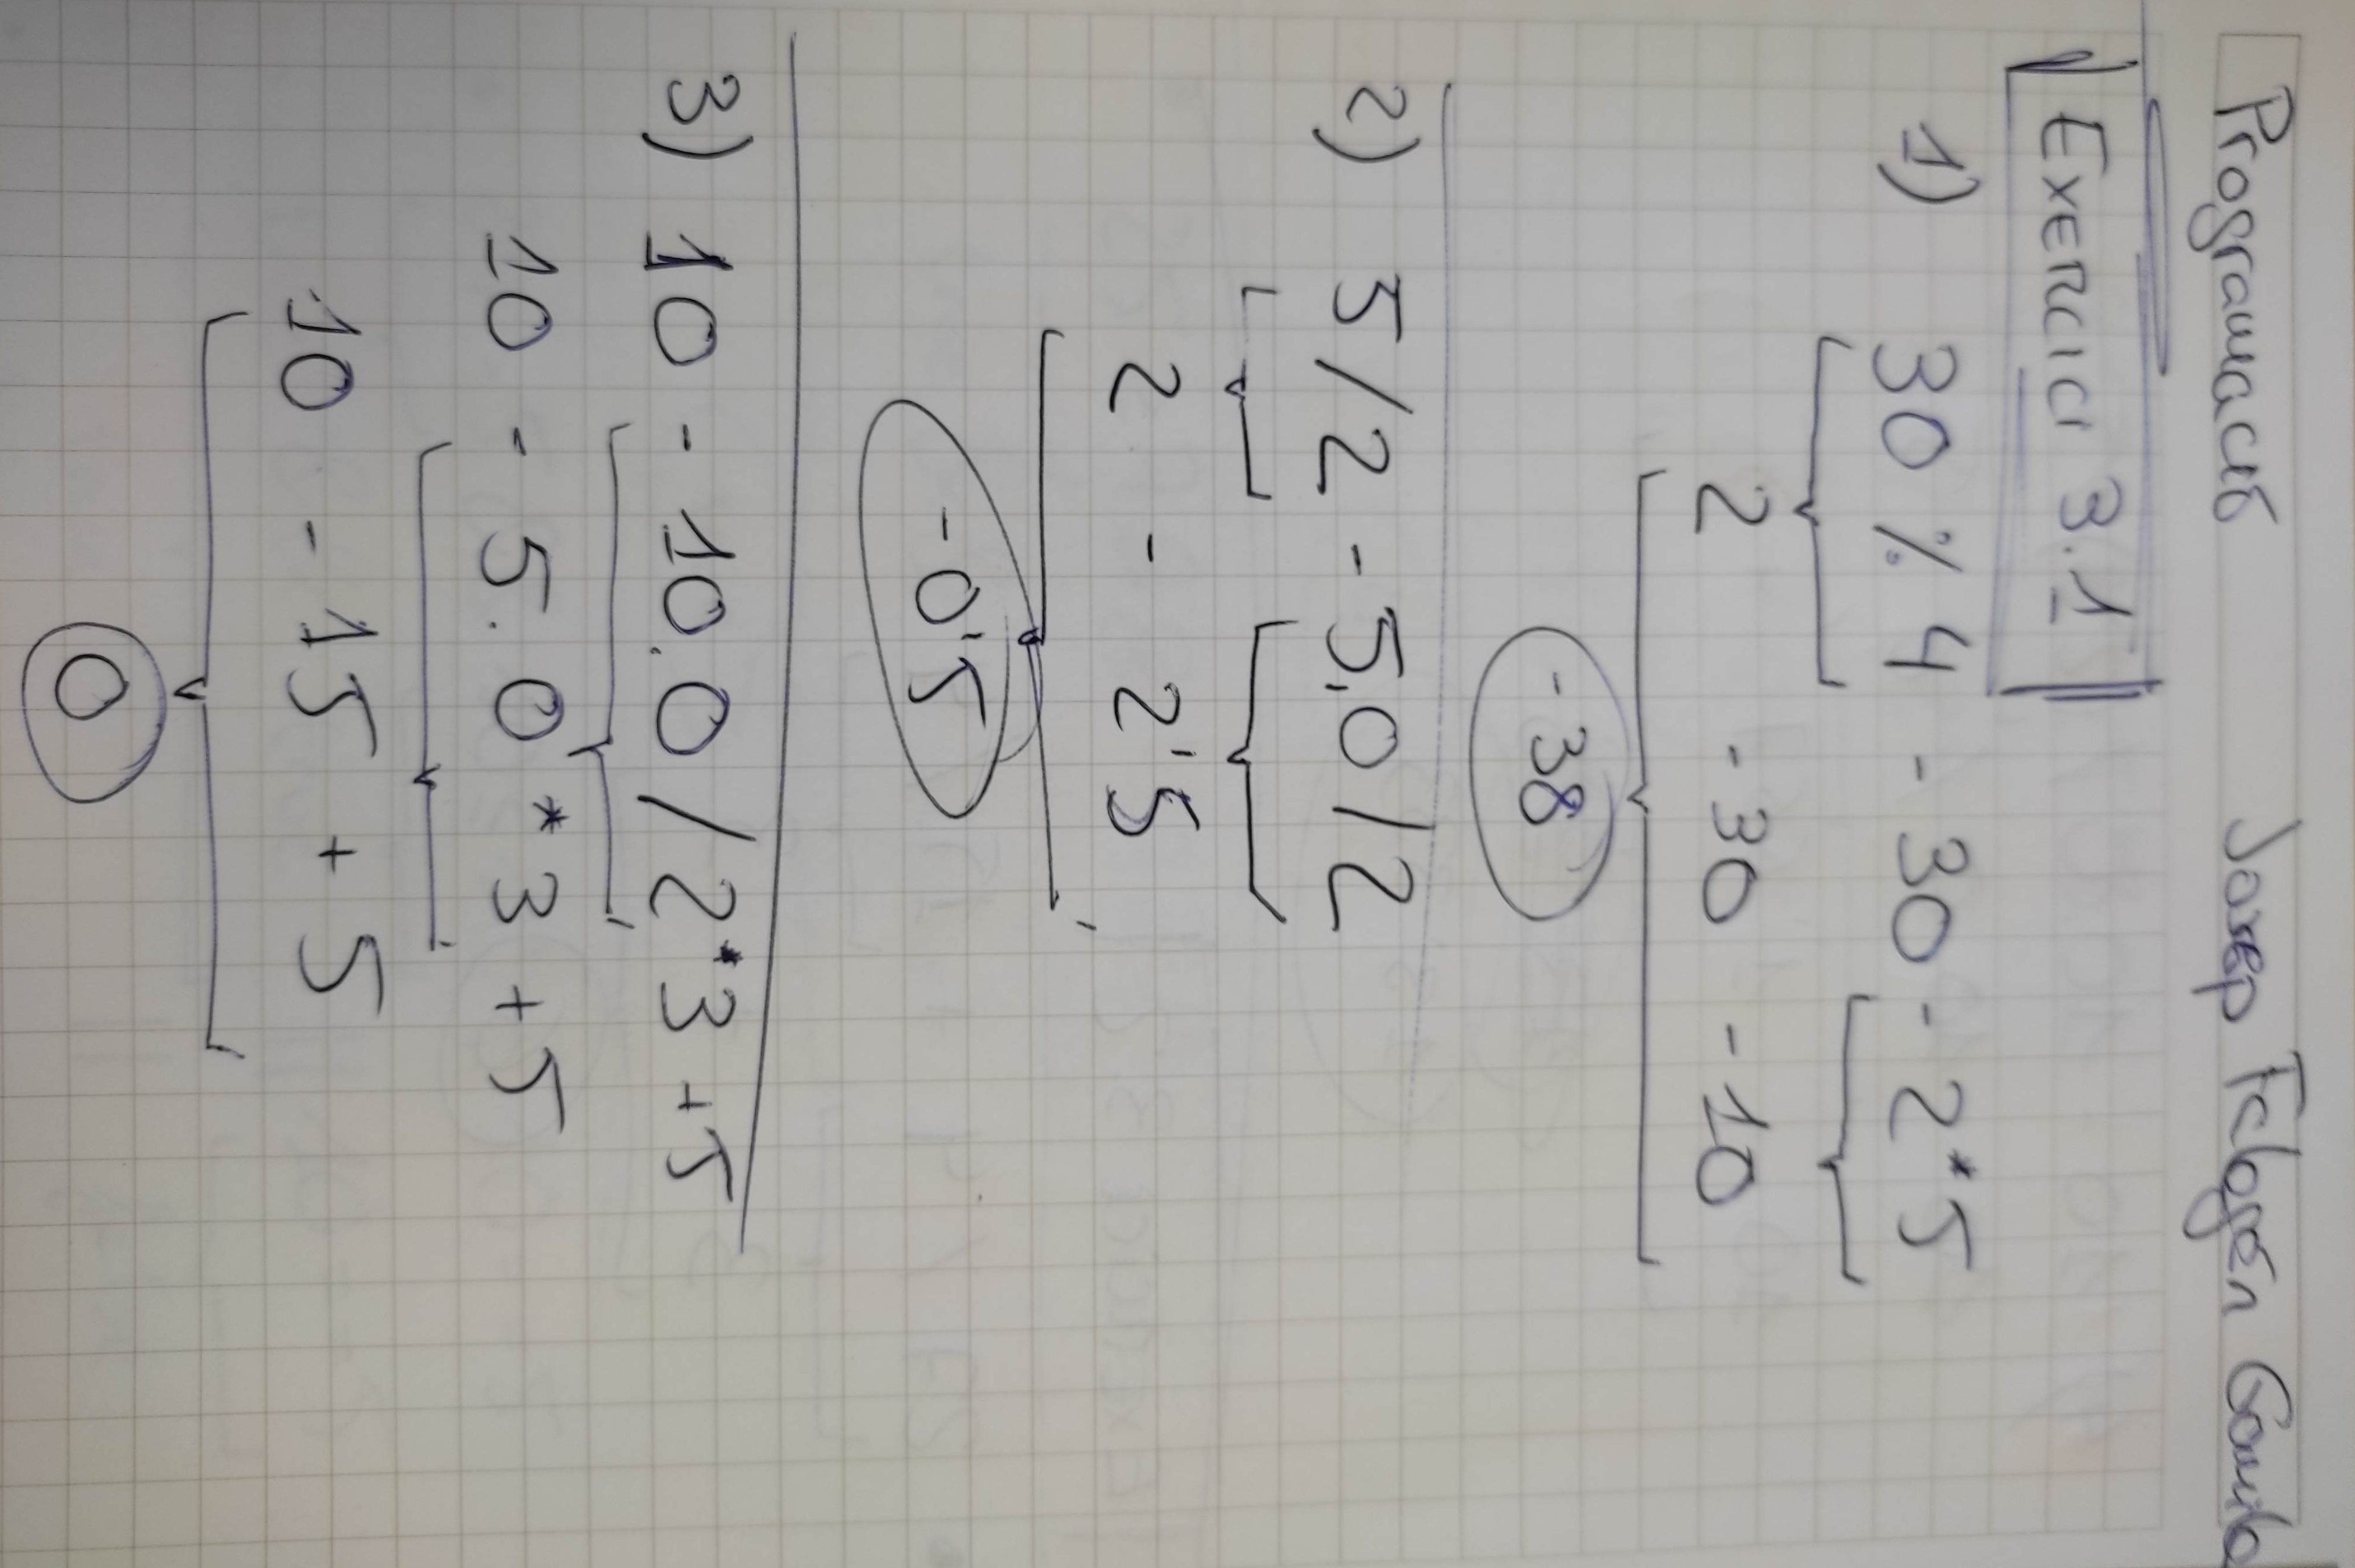 Programació Josep Felogén Gomila
EXERCICI 3.1
1) 30 % 4 - 30 - 2*5
2 - 30 - 10
-38
2) 5/2 - 5,0/2
2 - 2'5
-0'5
3) 10 - 10.0/2*3+5
10 - 5.0*3+5
10 - 15 + 5
0